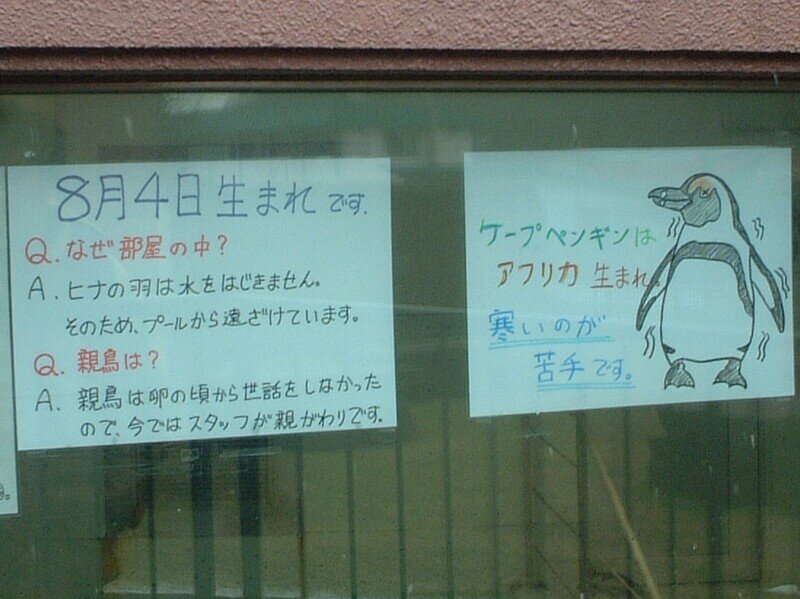 8月4日生まれです.
Q. なぜ部屋の中?
A. ヒナの羽は水をはじきません。
そのため、プールから遠ざけています。
Q. 親鳥は?
A. 親鳥は卵の頃から世話をしなかった
ので、今ではスタッフが親がわりです。
ケープペンギンは
アフリカ生まれ。
寒いのが
苦手です。